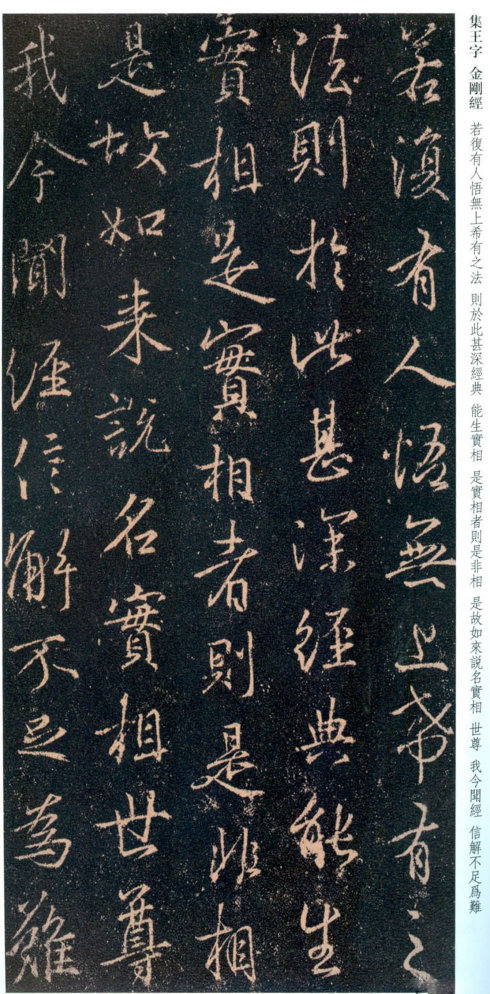 集王字 金剛經 若復有人悟無上希有之法 則於此甚深經典 能生實相 是實相者則是非相 是故如來説名實相 世尊 我今聞經 信解不足爲難
若復有人悟無上希有之
法則於此甚深經典能生
實相是實相者則是非相
是故如来説名實相世尊
我今聞經信解不足為難